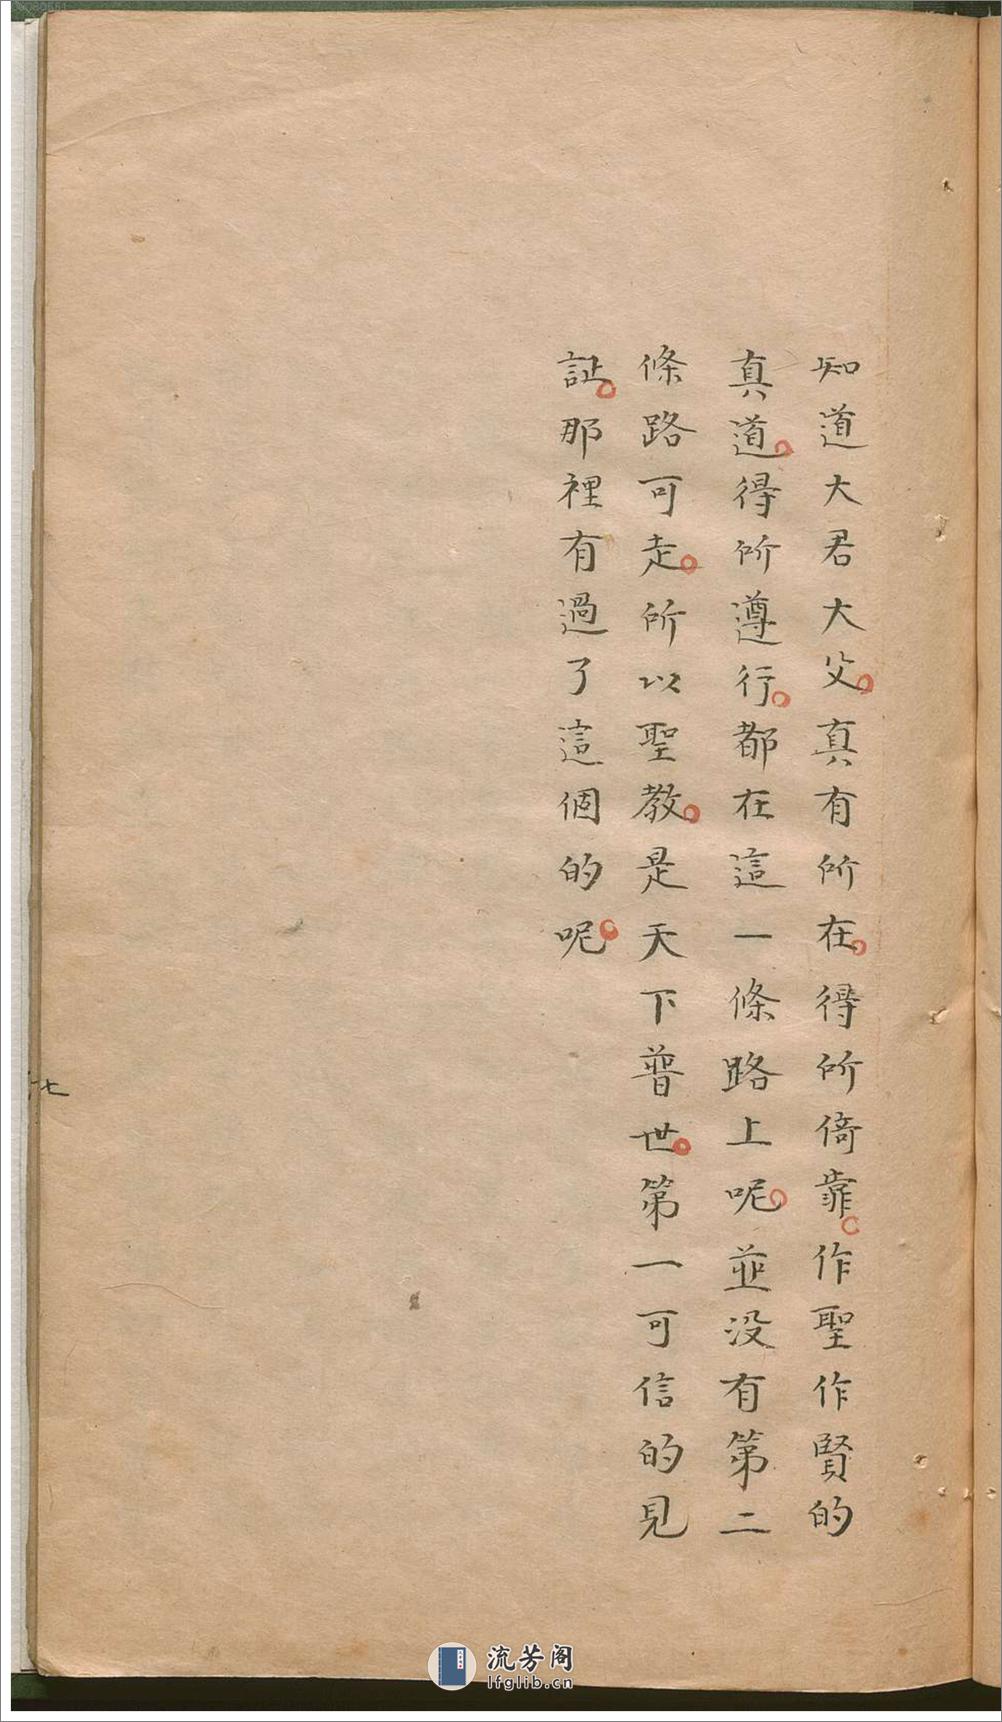 知道大君大父。真有所在。得所倚靠。作聖作賢的
真道。得所遵行。都在這一條路上呢。並没有第二
條路可走。所以聖教。是天下普世。第一可信的見
証。那裡有過了這個的呢。
七
流芳阁
lfglib.cn